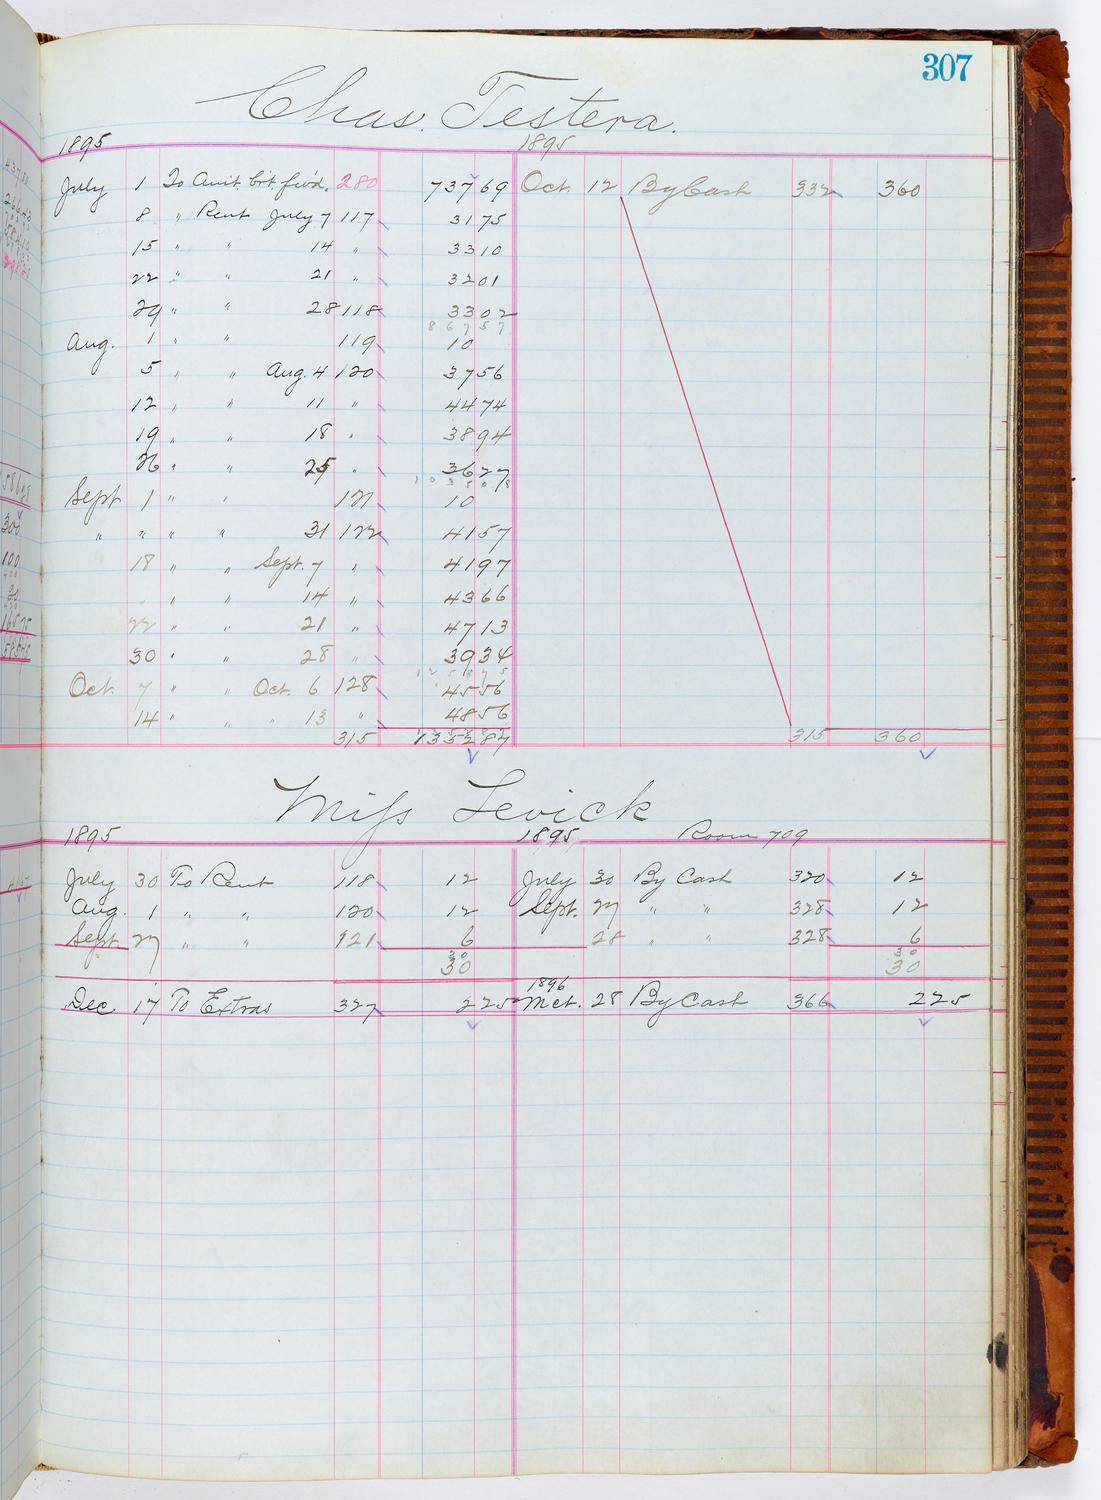 307
Chas. Testera.
1895 1895
July 1 To Amt. brt. fw'd. 280 737 69 Oct. 12 By Cash 332 360
8 " Rent July 7 117 31 75
15 " " 14 " 33 10
22 " " 21 " 32 01
29 " " 28 118 33 02
8 6 7 5 7
Aug. 1 " " 119 10
5 " " Aug. 4 120 37 56
12 " " 11 " 44 74
19 " " 18 " 38 94
26 " " 25 " 36 27
1 0 3 5 0 8
Sept 1 " " 121 10
" " " " 31 122 41 57
18 " " Sept. 7 " 41 97
" " 14 " 43 66
22 " " 21 " 47 13
30 " " 28 " 39 34
1 2 5 8 7 5
Oct. 7 " " Oct. 6 128 45 56
14 " " " 13 " 48 56
315 1352 87 315 360
Miss Levick
1895 1895 Room 709
July 30 To Rent 118 12 July 30 By Cash 320 12
Aug. 1 " " 120 12 Sept. 27 " " 328 12
Sept. 27 " " 121 6 28 " " 328 6
30 30
30 30
1896
Dec. 17 To Extras 327 2 25 Mct. 28 By Cash 366 2 25